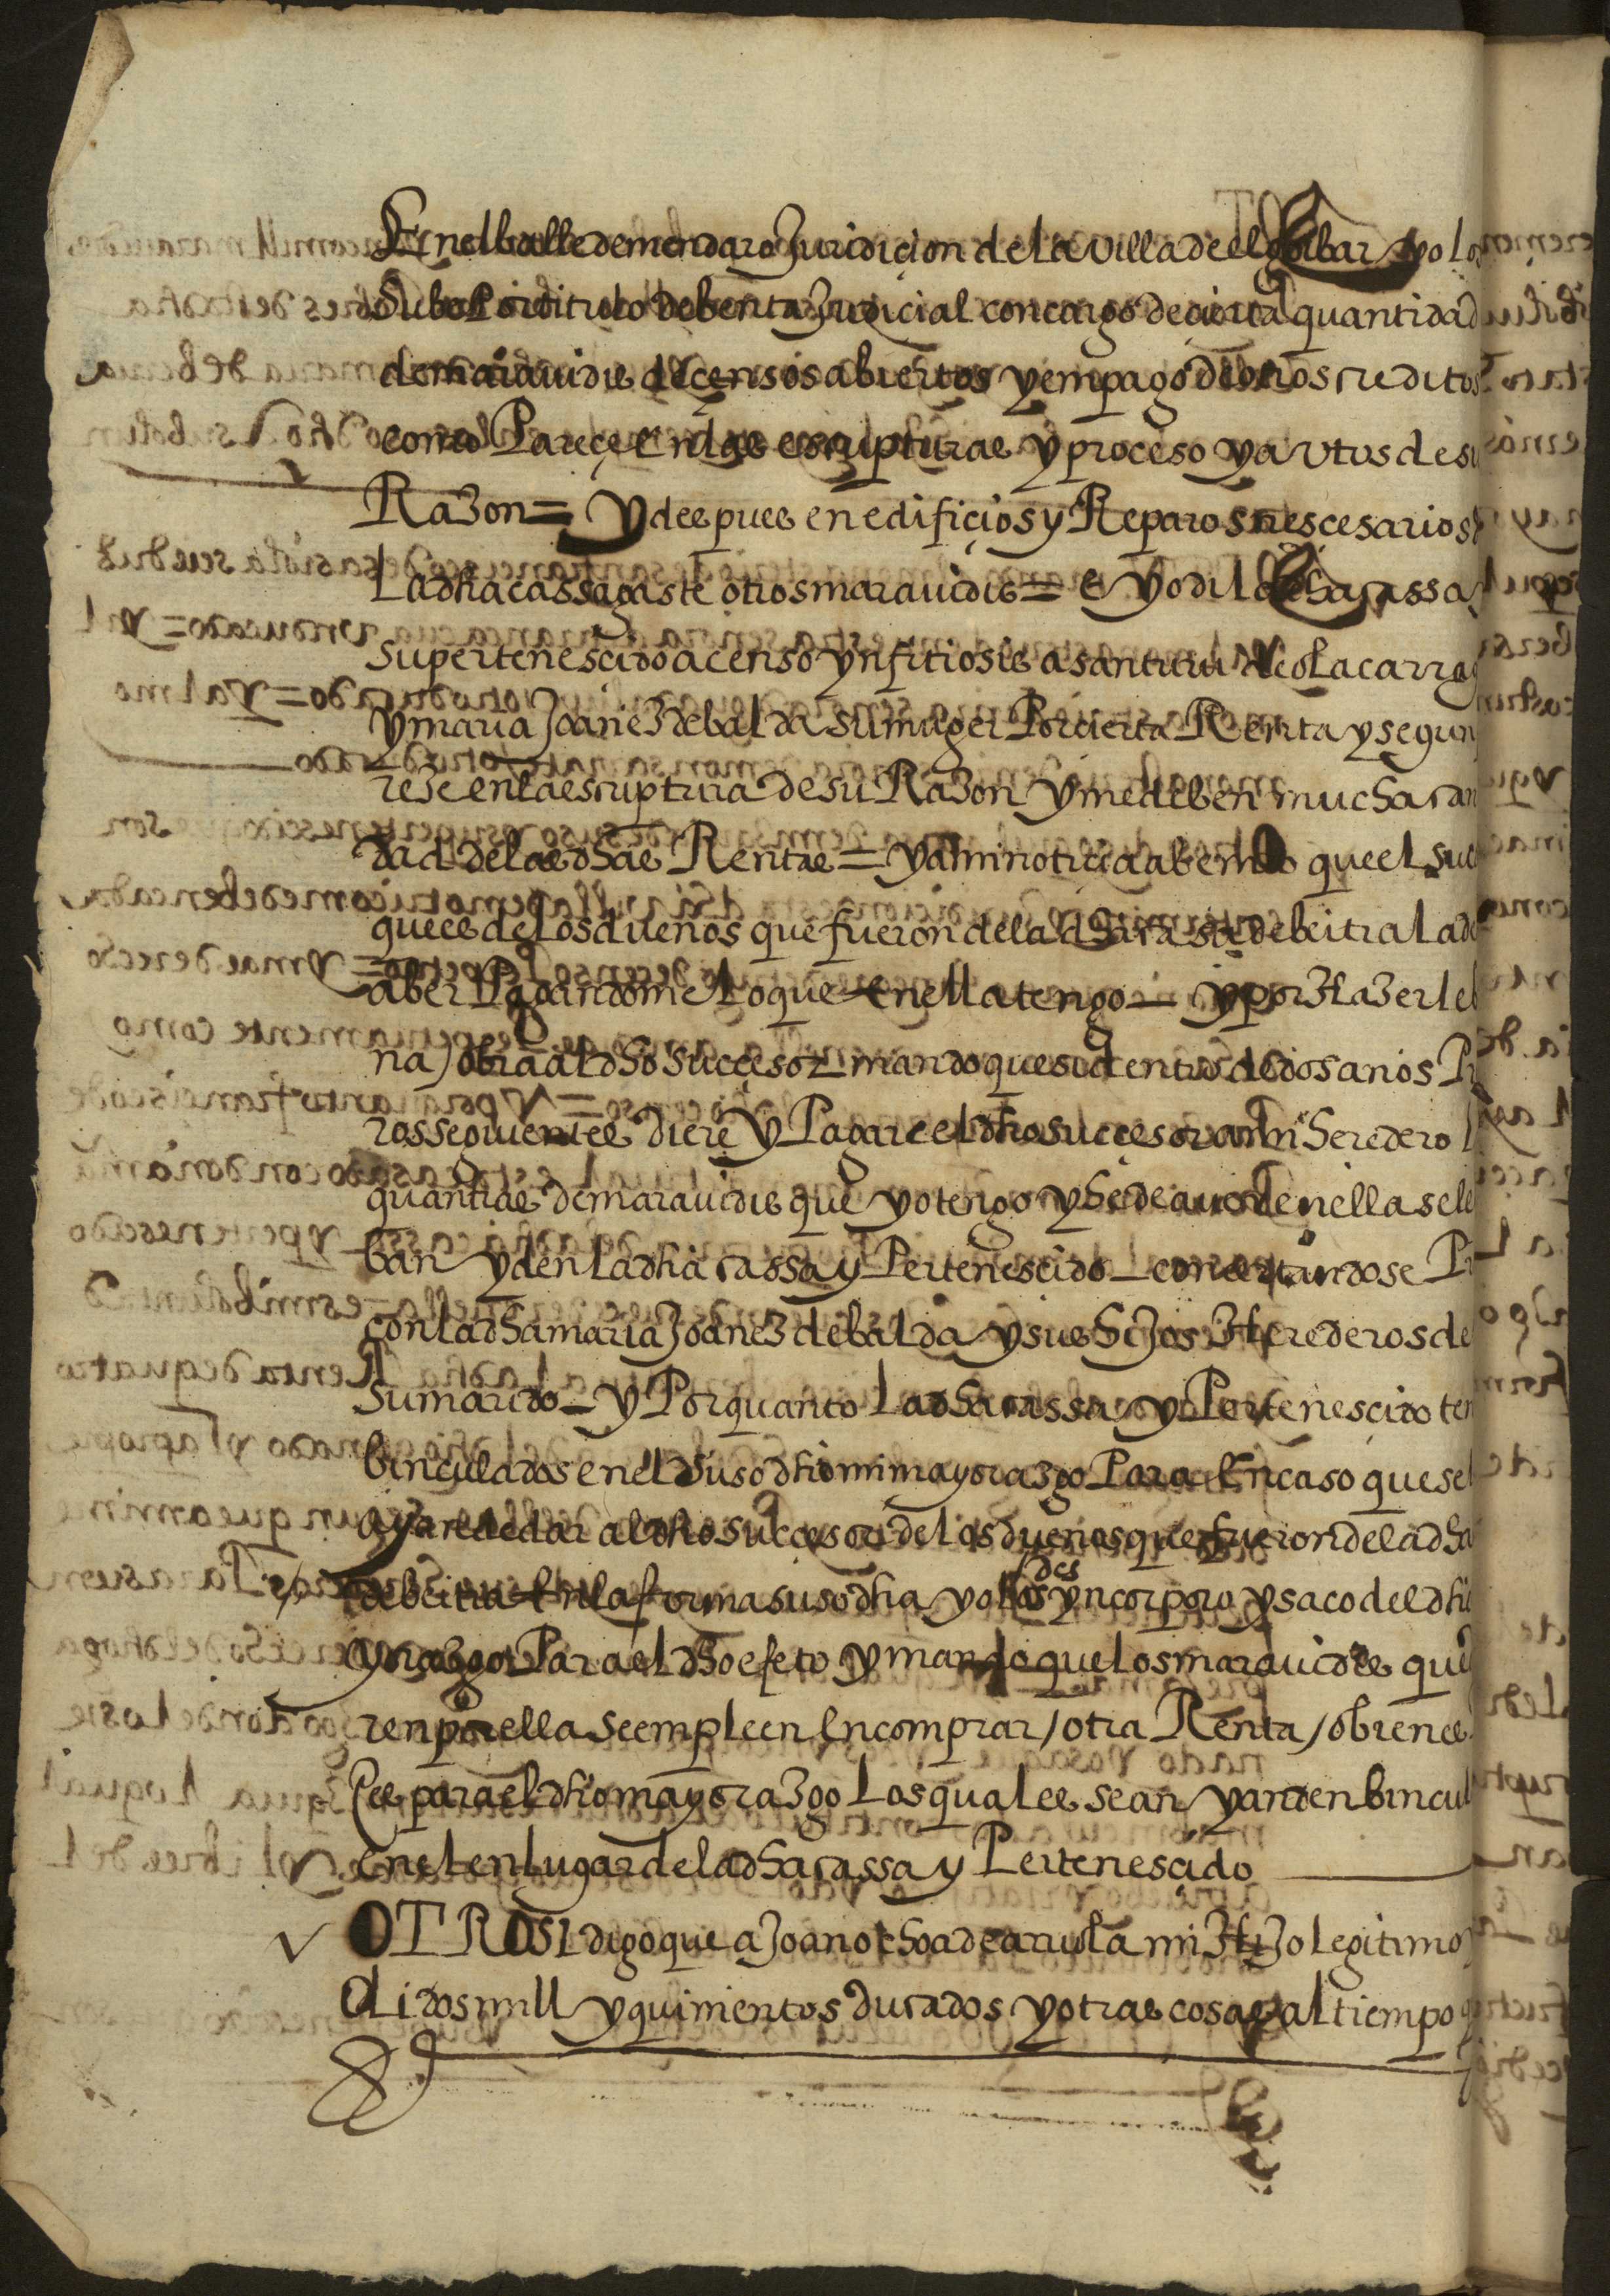 En el balle de mendaro Juridiçion de la villa de elgoibar yo los
Vbe Por titulo de benta Judicial con cargo de çierta quantidad
de maravidis de çensos abiertos y en pago de otros creditos
como Pareçe En las escripturas y proceso y avtos de su
Razon = y despues en edifiçios y Reparos nescesarios
La dha cassa gaste otros maravidis = e yo di La dha cassa y
su pertenescido a censo ynfitiosis a santuru de olacarra
y maria Joanez de balda su muger Por cierta Renta y segun
rese en la escriptura de su Razon y me deben mucha can
dad de las dhas Rentas = y a mi notiçia a benido que el suc
que es de Los dueños que fueron de la dha casa de beitia La de
aber Pagandome Lo que En ella tengo = y por Hazer le b
na / obra al dho sucçesor mando que si dentro de dos años Pr
ros seguientes diere y Pagare el dho sucçesor a mi heredero l
quantias de maravidis que yo tengo y he de auer en ella se le
ban y den La dha cassa y Pertenescido _ conçertandose Pr
con la dha maria Joanez de balda y sus hijos Herederos de
su marido _ y Por quanto La dha cassa y Pertenesçido ten
binculados en el suso dho mi mayorazgo Para En caso que se
ayan de dar al dho sucçesor de los dueños que fueron de la dha
de beitia En la forma suso dha yo los des yncorporo y saco del dho
yorazgo Para el dho efeto y mando que Los maravidis que
ren por ella se empleen En comprar / otra Renta / o bienes
çes para el dho mayorazgo Los quales sean y anden bincul
En el en lugar de la dha cassa y Pertenesçido
OTROSI digo que a Joan ochoa de arriola mi Hijo legitimo
di dos mill y quinientos ducados y otras cosas al tiempo q